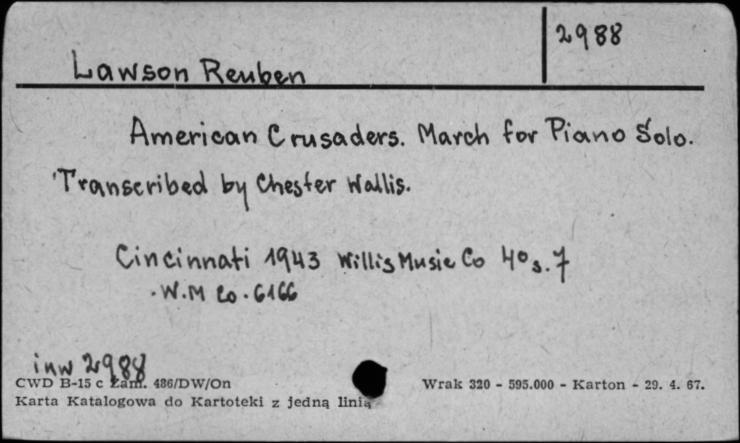 2988
Lawson Reuben
American Crusaders. March for Piano Solo.
Transcribed by Chester Wallis.
Cincinnati 1943 Willis Music Co 4° s. 7
W.M Co. 6166
inw 2988
CWD B-15 c Zam. 486/DW/On
Wrak 320 - 595.000 - Karton - 29. 4. 67.
Karta Katalogowa do Kartoteki z jedną linią